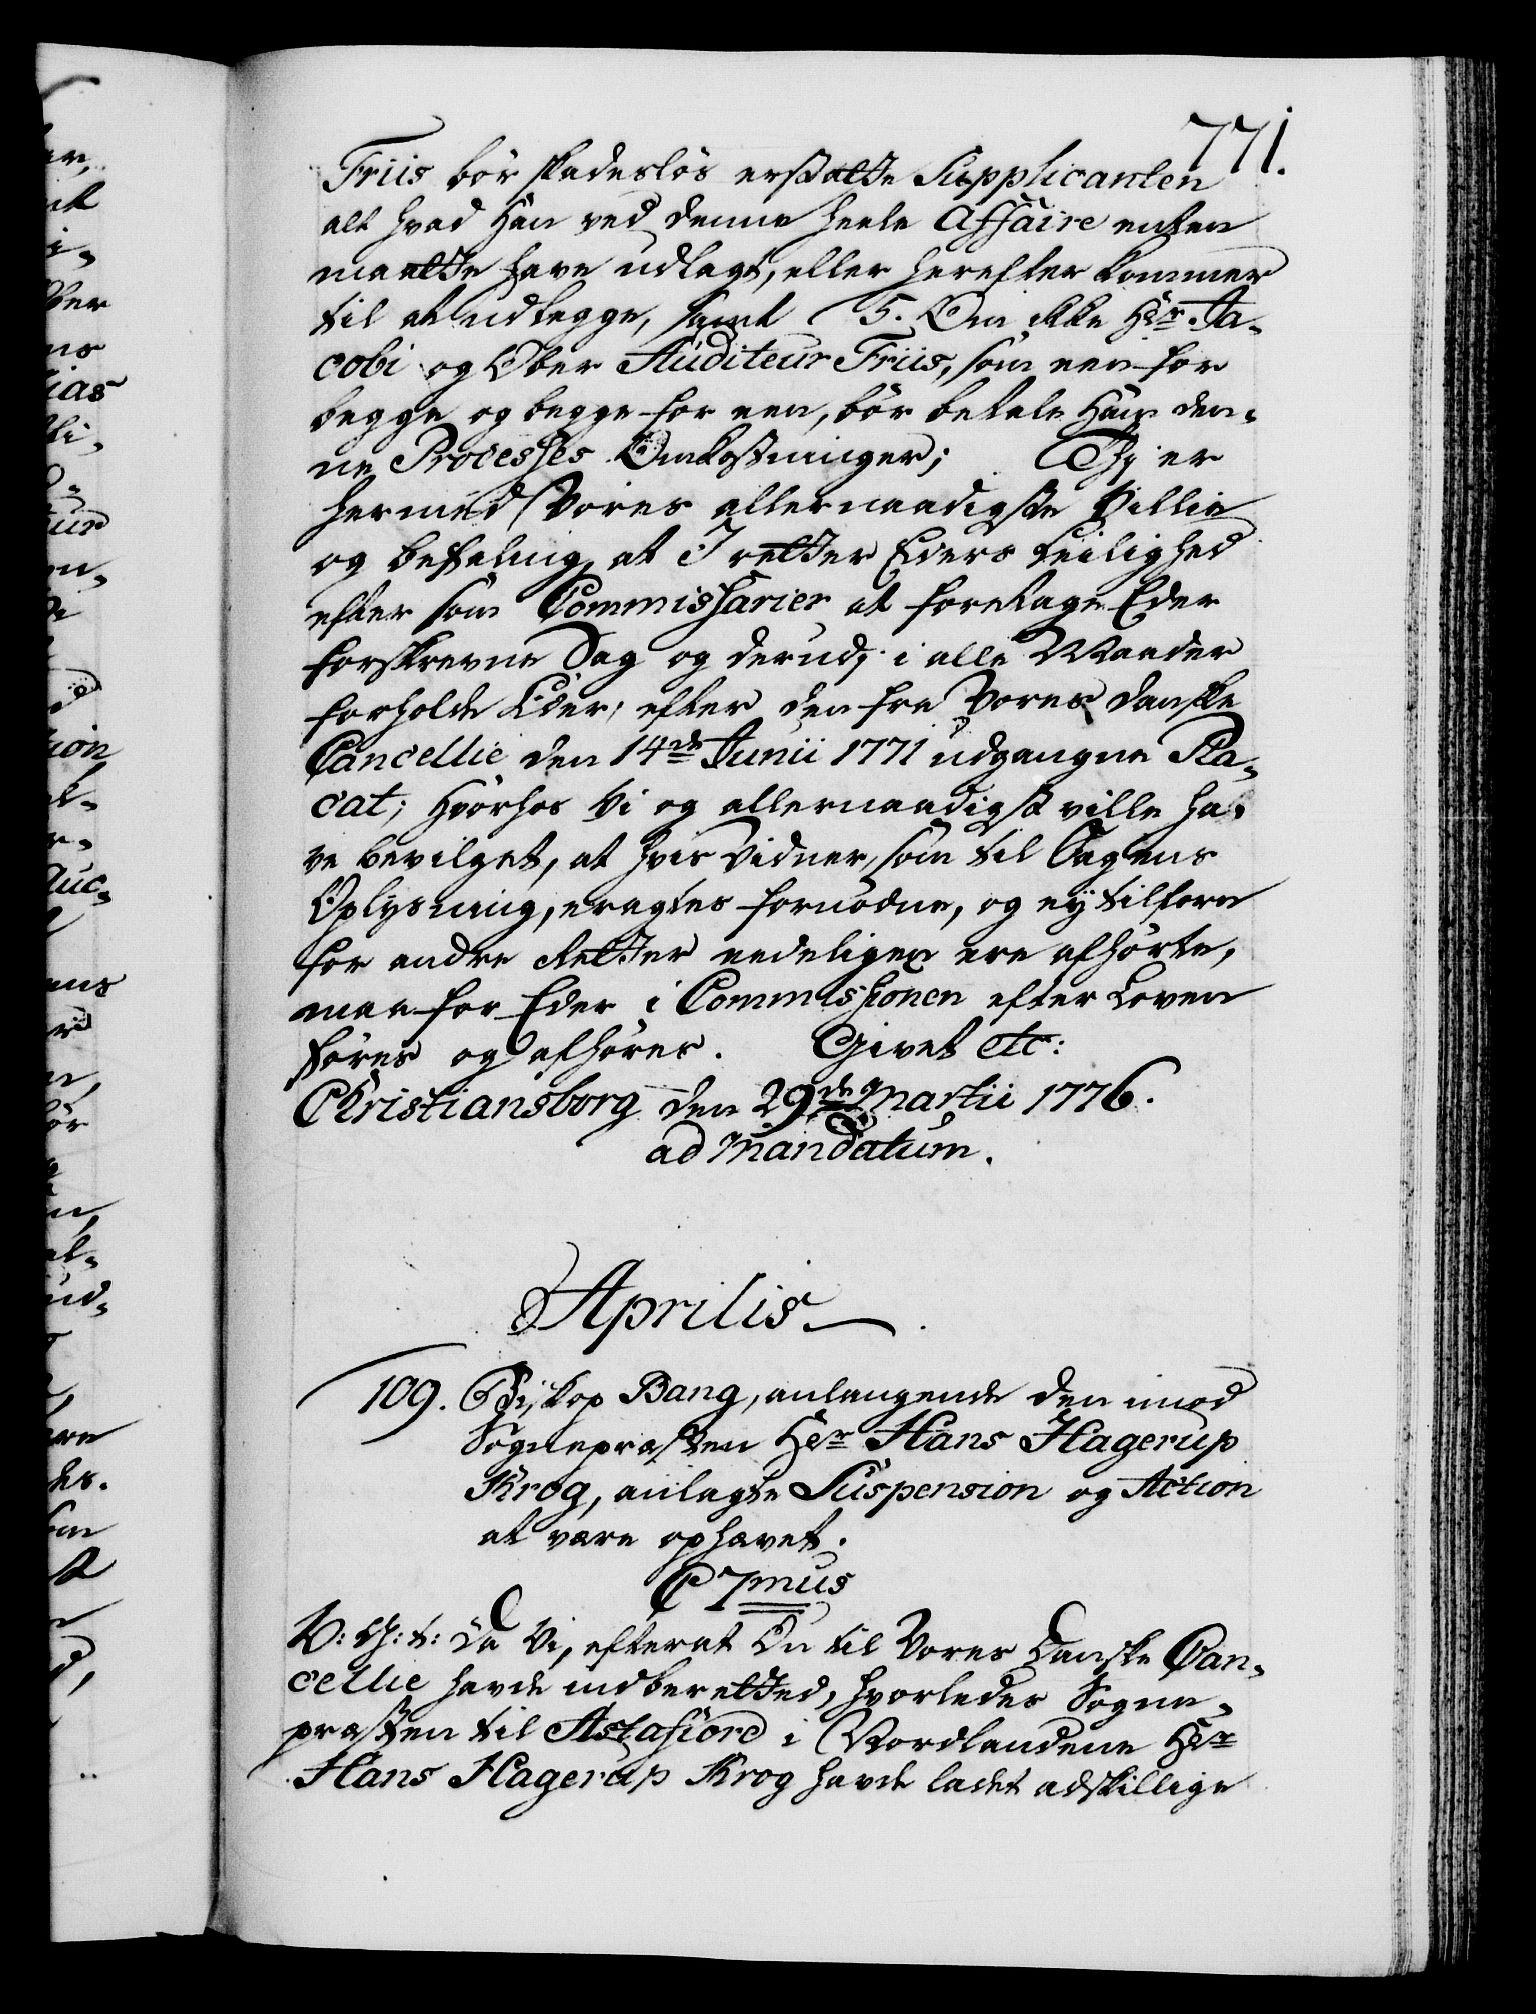 771.
Friis bør skadesløs erstatte Supplicanten
alt hvad Han ved denne heele Affaire enten
maatte have udlagt, eller herefter kommer
til at udlegge, samt 5. Om ikke Hr. Ja-
cobi og Ober Auditeur Friis, som een for
begge og begge for een, bør betale Ham den-
ne Processes Omkostninger; Thi er
hermed Vores allernaadigste Villie
og befaling, at I retter Eders Leilighed
efter som Commissarier at foretage Eder
forskrevne Sag og derudi i alle Maader
forholde Eder, efter den fra Vores danske
Cancellie den 14de Junii 1771 udgangne Pla-
cat; Hvorhos Vi og allernaadigst ville ha-
ve bevilget, at hvis Vidner, som til Sagens
Oplysning, eragtes fornødne, og ey tilforn
for andre Retter eedeligen ere afhørte,
maa for Eder i Commissionen efter Loven
føres og afhøres. Givet etc:
Christiansborg den 29de Martii 1776.
ad Mandatum.
Aprilis
109. Biskop Bang, anlangende den imod
Sognepræsten Hr. Hans Hagerup
Krog, anlagte Suspension og Action
at være ophævet.
C 7mus
V: G: t: Da Vi, efterat Du til Vores Danske Can-
cellie havde indberetted, hvorledes Sogne-
præsten til Astafiord i Nordlandene Hr.
Hans Hagerup Krog havde ladet adskillige